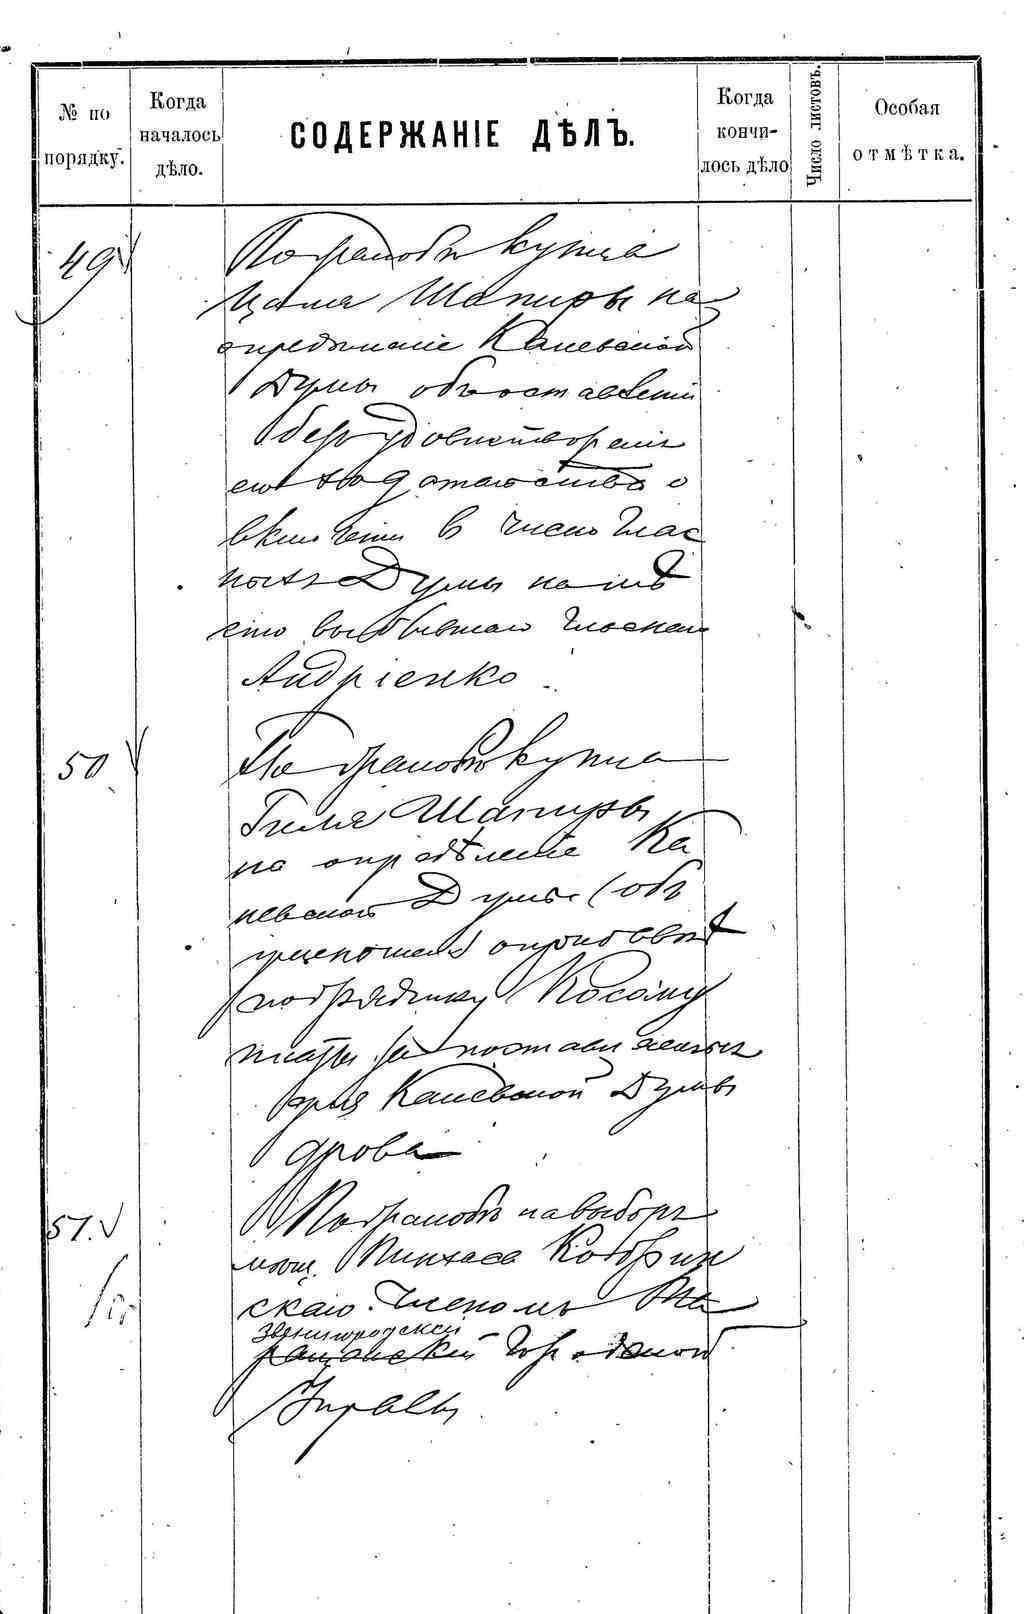 № по порядку.
Когда началось дѣло.
СОДЕРЖАНІЕ ДѢЛЪ.
Когда кончи-лось дѣло
Число листовъ.
Особая отмѣтка.
49
По жалобѣ купца
Шапиры на
опредѣленіе Каневской
Думы объ оставленіи
безъ удовлетворенія
его ходатайства о
включеніи въ число Глас
ныхъ Думы на мѣ
сто выбывшаго Гласнаго
Андріенко.
50
По жалобѣ купца
Гилля Шапиры
на опредѣленіе Ка
невской Думы (объ
подрядчику Косому
платы за поставленныя
для Каневской Думы
дрова
51.
По жалобѣ на выборъ
мѣщ. Пинхаса Кобрин
скаго Членомъ Та
Звенигородской
ращанской Городской
Управы.